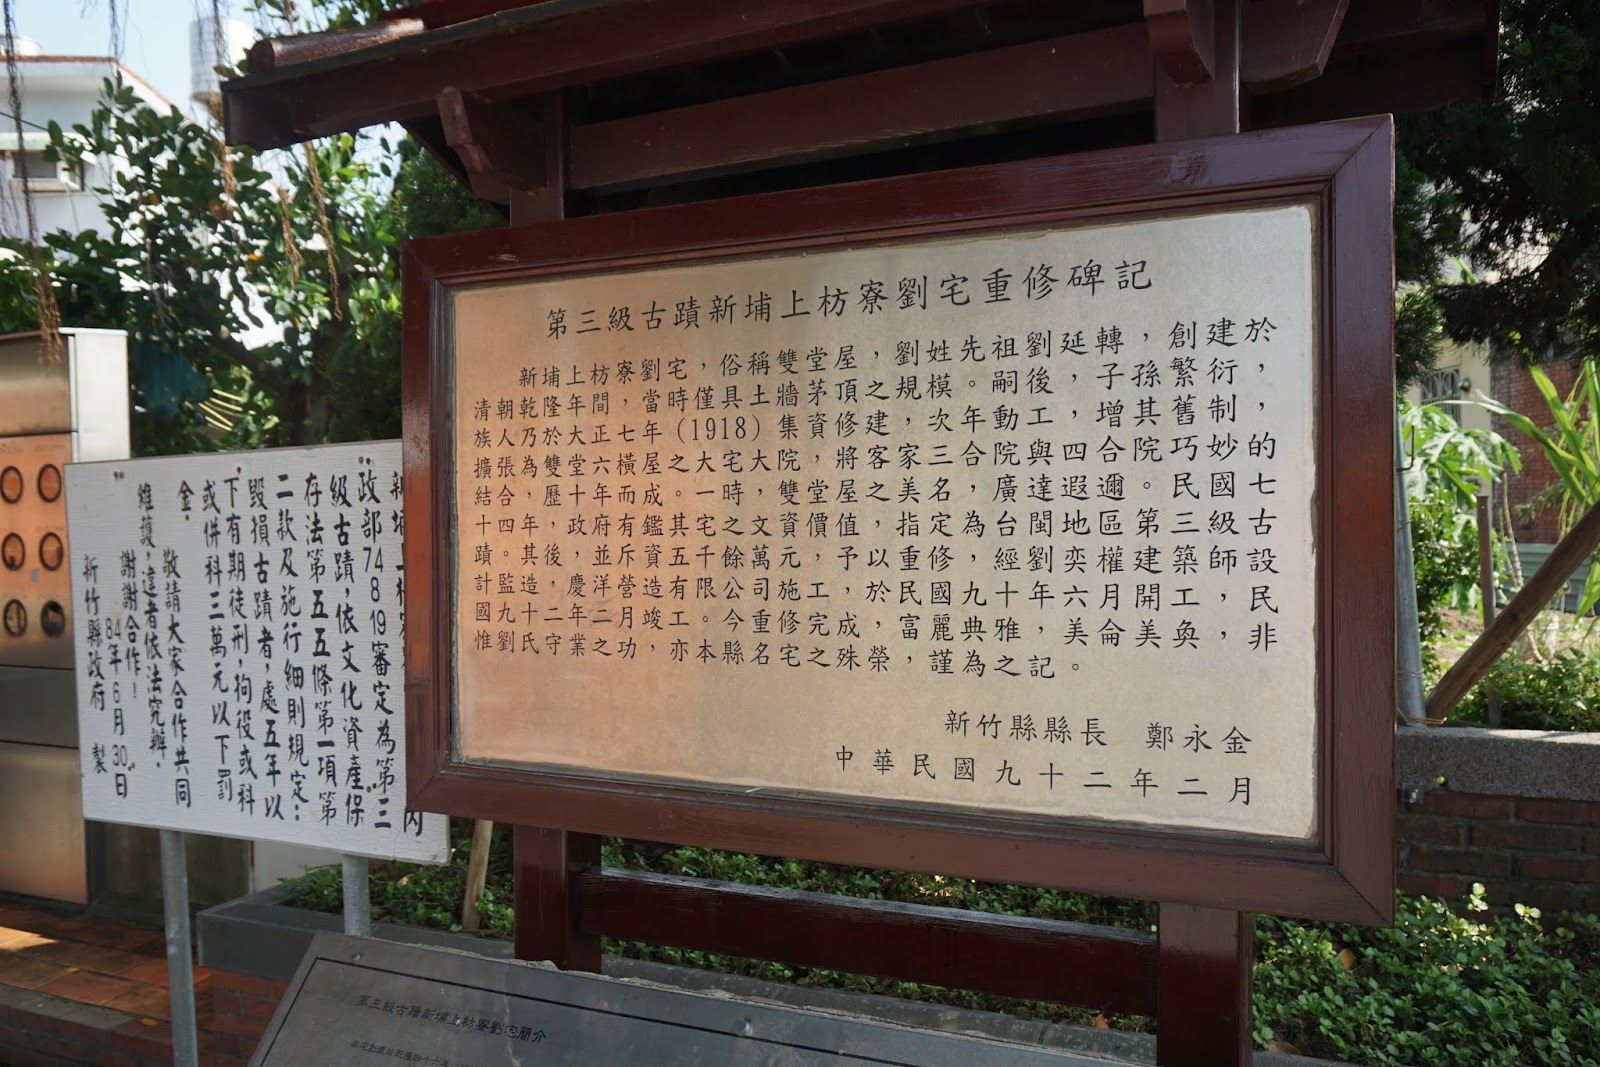 第三級古蹟新埔上枋寮劉宅重修碑記
新埔上枋寮劉宅，俗稱雙堂屋，劉姓先祖劉延轉，創建於
清朝乾隆年間，當時僅具土牆茅頂之規模。嗣後，子孫繁衍，
族人乃於大正七年（1918）集資修建，次年動工，增其舊制，
擴張為雙堂六橫屋之大宅大院，將客家三合院與四合院巧妙的
結合，歷十年而成。一時，雙堂屋之美名，廣達遐邇。民國七
十四年，政府有鑑其宅之文資價值，指定為台閩地區第三級古
蹟。其後，並斥資五千餘萬元，予以重修，經劉奕權建築師設
計監造，慶洋營造有限公司施工，於民國九十年六月開工，民
國九十二年二月竣工。今重修完成，富麗典雅，美侖美奐，非
惟劉氏守業之功，亦本縣名宅之殊榮，謹為之記。
新竹縣縣長 鄭永金
中華民國九十二年二月
內
政部74.8.19審定為第三
級古蹟，依文化資產保
存法第五五條第一項第
二款及施行細則規定：
毀損古蹟者，處五年以
下有期徒刑，拘役或科
或併科三萬元以下罰
金.
敬請大家合作共同
維護，違者依法究辦.
謝謝合作！
84年6月30日
新竹縣政府 製
第三級古蹟新埔上枋寮劉宅簡介